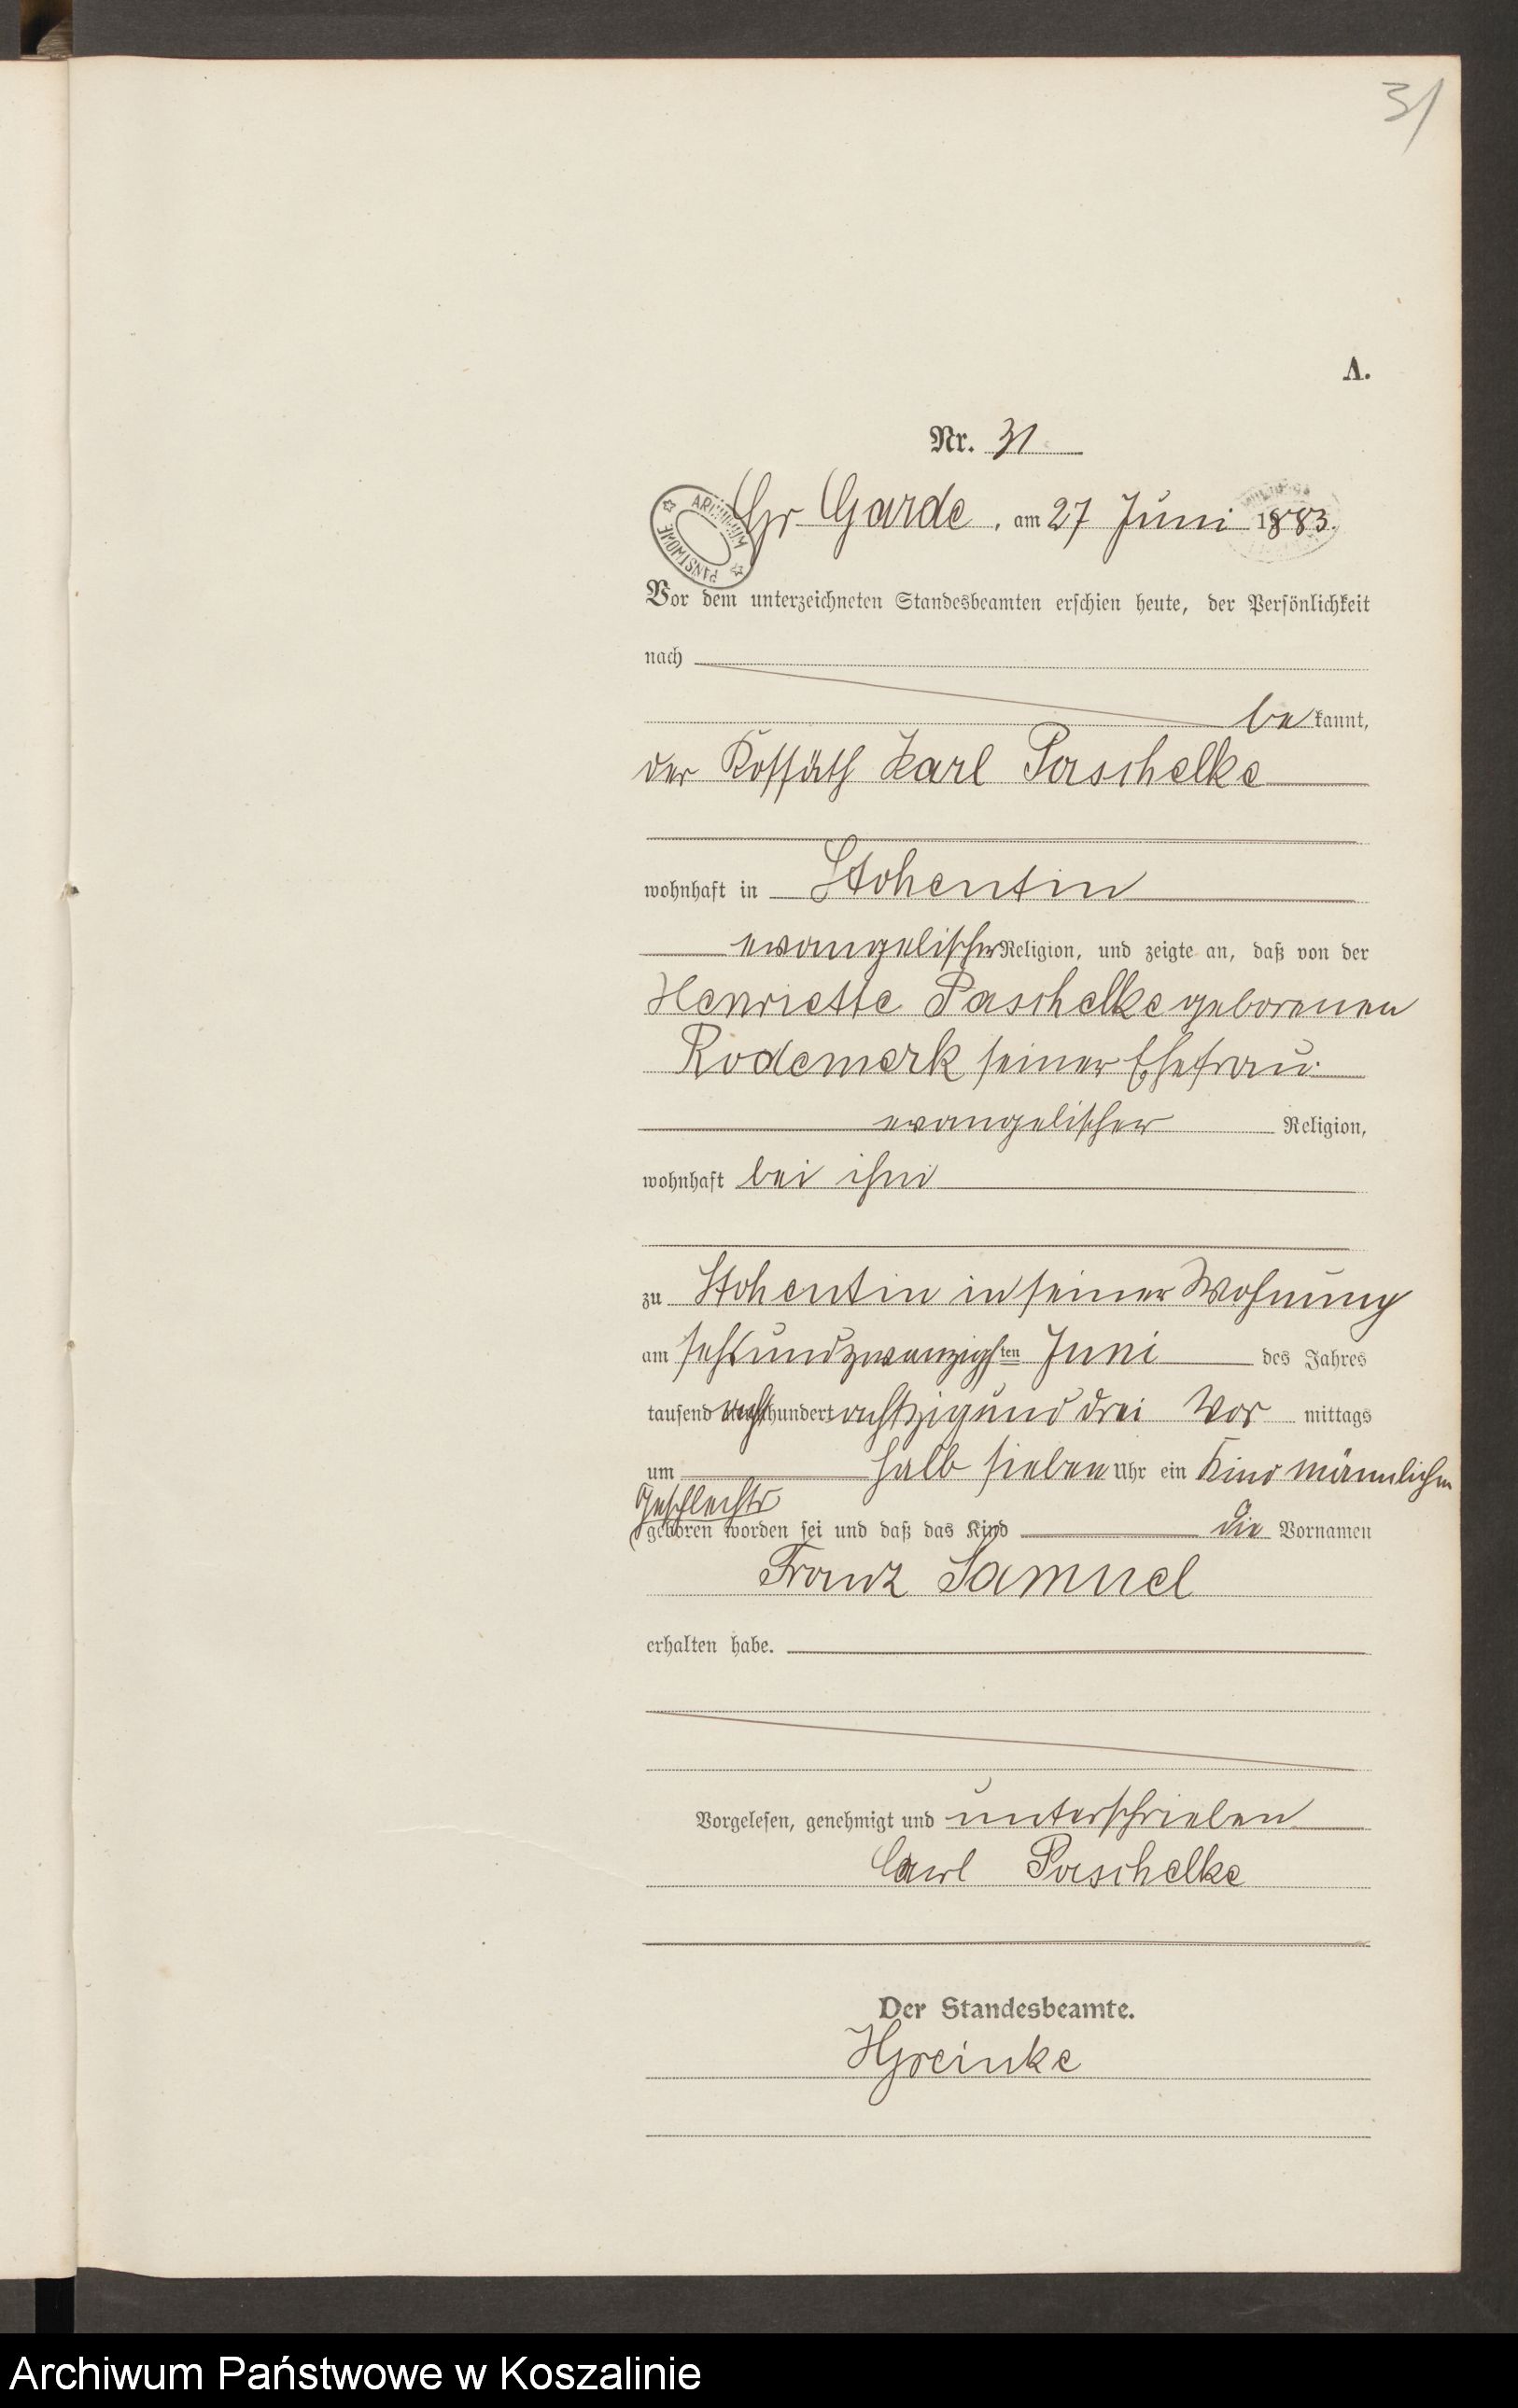 31
A.
Nr. 31
ARCHIWUM PAŃSTWOWE
Gr Garde, am 27 Juni 1883.
Vor dem unterzeichneten Standesbeamten erschien heute, der Persönlichkeit
nach
bekannt,
der Kossäth Karl Paschelke
wohnhaft in Stohentin
evangelischer Religion, und zeigte an, daß von der
Henriette Paschelke geborenen
Rodemerk seiner Ehefrau
evangelischer Religion,
wohnhaft bei ihm
zu Stohentin in seiner Wohnung
am sechsundzwanzigsten Juni des Jahres
tausend achthundert achtzig und drei Vor mittags
um halb sieben Uhr ein Kind männlichen
Geschlechts
geboren worden sei und daß das Kind die Vornamen
Franz Samuel
erhalten habe.
Vorgelesen, genehmigt und unterschrieben
Carl Paschelke
Der Standesbeamte.
HGreinke
Archiwum Państwowe w Koszalinie